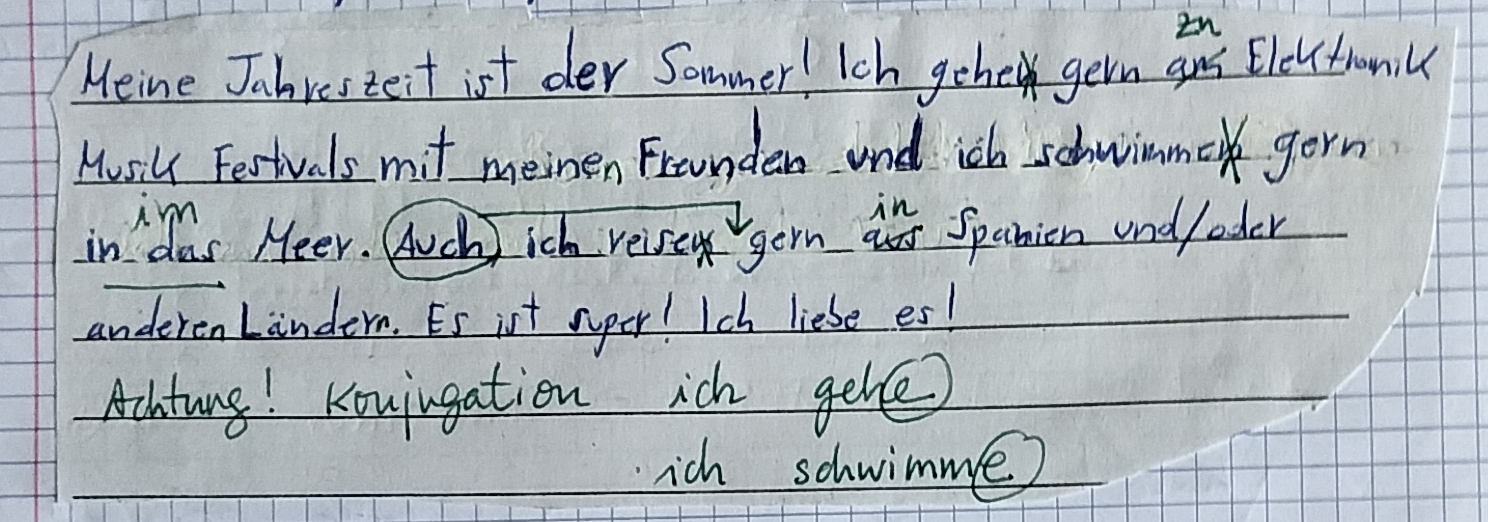 zu
Meine Jahreszeit ist der Sommer! Ich gehen gern ans Elekthonik
Musik Festivals mit meinen Freunden und ich schwimmen gern
im in
in das Meer. Auch ich reisen gern aus Spanien und/oder
anderen Ländern. Es ist super! Ich liebe es!
Achtung! Konjugation ich gehe
ich schwimme